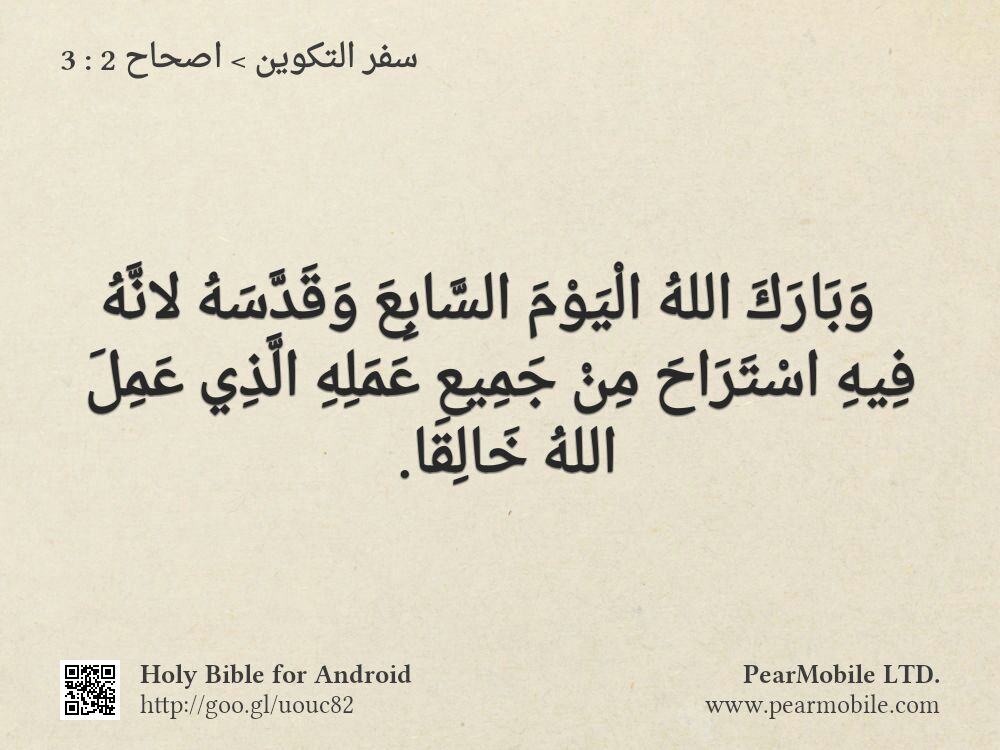 سفر التكوين > اصحاح 2 : 3
وَبَارَكَ اللهُ الْيَوْمَ السَّابِعَ وَقَدَّسَهُ لانَّهُ
فِيهِ اسْتَرَاحَ مِنْ جَمِيعِ عَمَلِهِ الَّذِي عَمِلَ
اللهُ خَالِقا.
Holy Bible for Android
http://goo.gl/uouc82
PearMobile LTD.
www.pearmobile.com